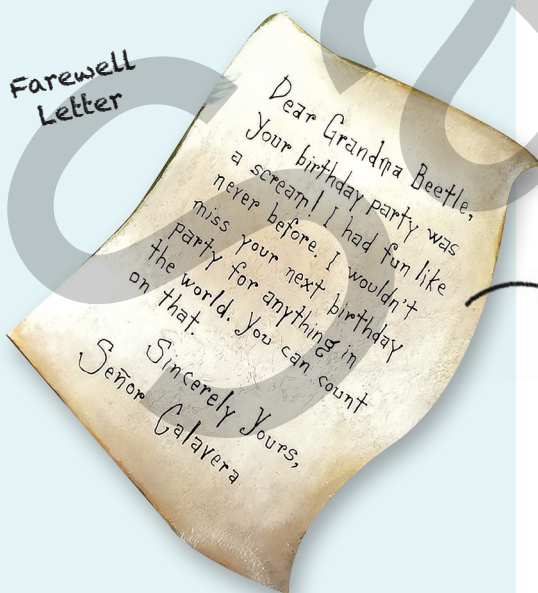 Farewell
Letter
Dear Grandma Beetle,
Your birthday party was
a scream! I had fun like
never before. I wouldn't
miss your next birthday
party for anything in
the world. You can count
on that.
Sincerely Yours,
Señor Calavera